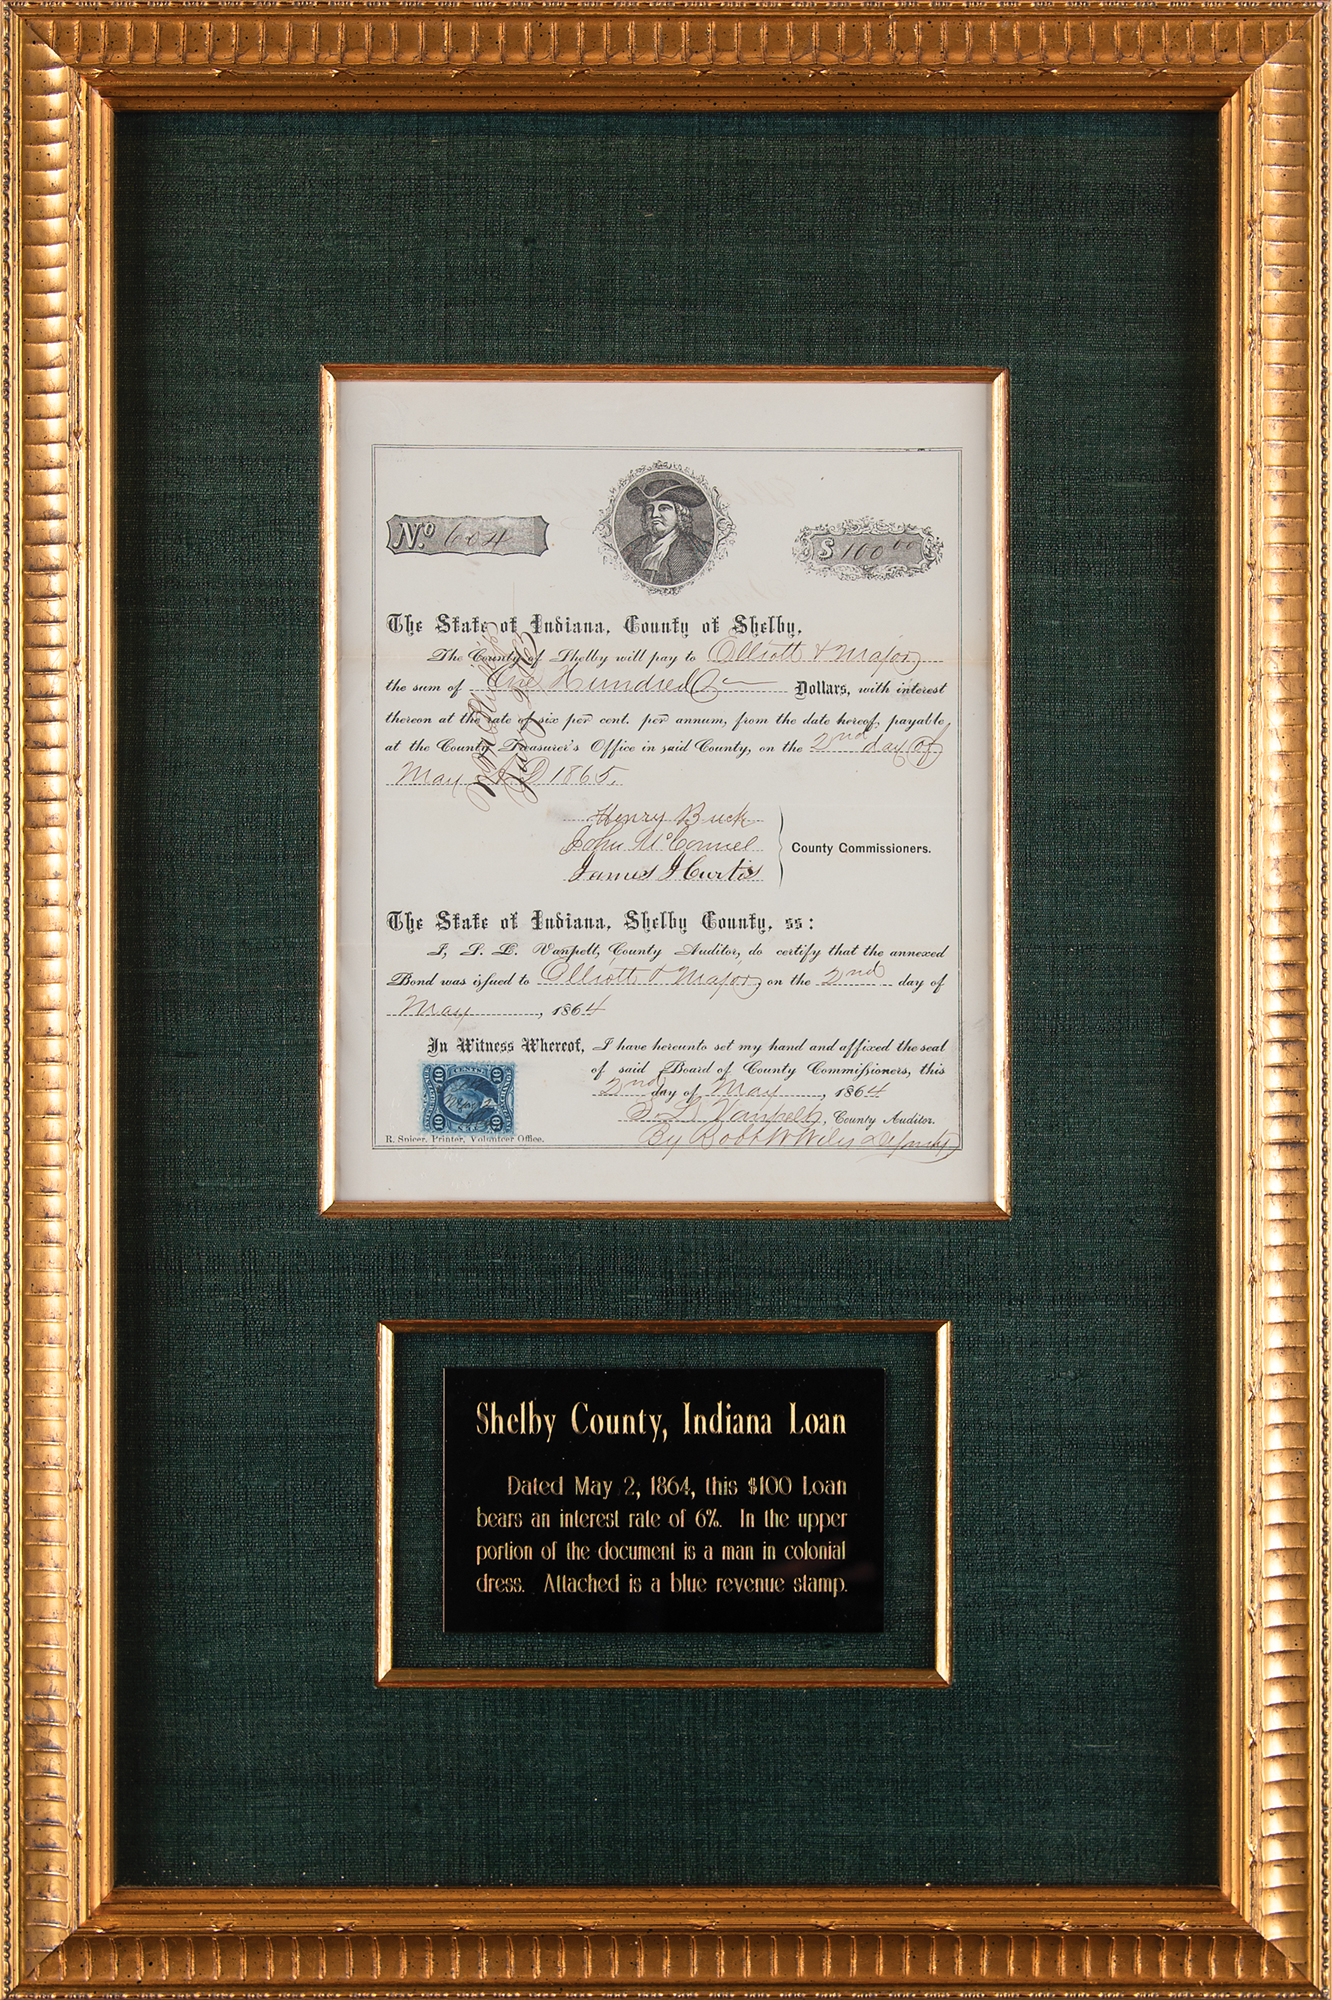 No. 604
$ 100 00
The State of Indiana, County of Shelby,
The County of Shelby will pay to Elliott & Major
the sum of One Hundred Dollars, with interest
thereon at the rate of six per cent. per annum, from the date hereof, payable
at the County Treasurer's Office in said County, on the 2nd day of
May A D 1865.
Henry Buck
John McConnel
James J Curtis
County Commissioners.
The State of Indiana, Shelby County, ss:
I, S. L. Vanpelt, County Auditor, do certify that the annexed
Bond was issued to Elliott & Major, on the 2nd day of
May, 1864
In Witness Whereof, I have hereunto set my hand and affixed the seal
of said Board of County Commissioners, this
2nd day of May, 1864
S. L. Vanpelt, County Auditor.
By Robt W Wiles Deputy
10 CENTS 10
10 10
R. Spicer, Printer, Volunteer Office.
Shelby County, Indiana Loan
Dated May 2, 1864, this $100 Loan
bears an interest rate of 6%. In the upper
portion of the document is a man in colonial
dress. Attached is a blue revenue stamp.